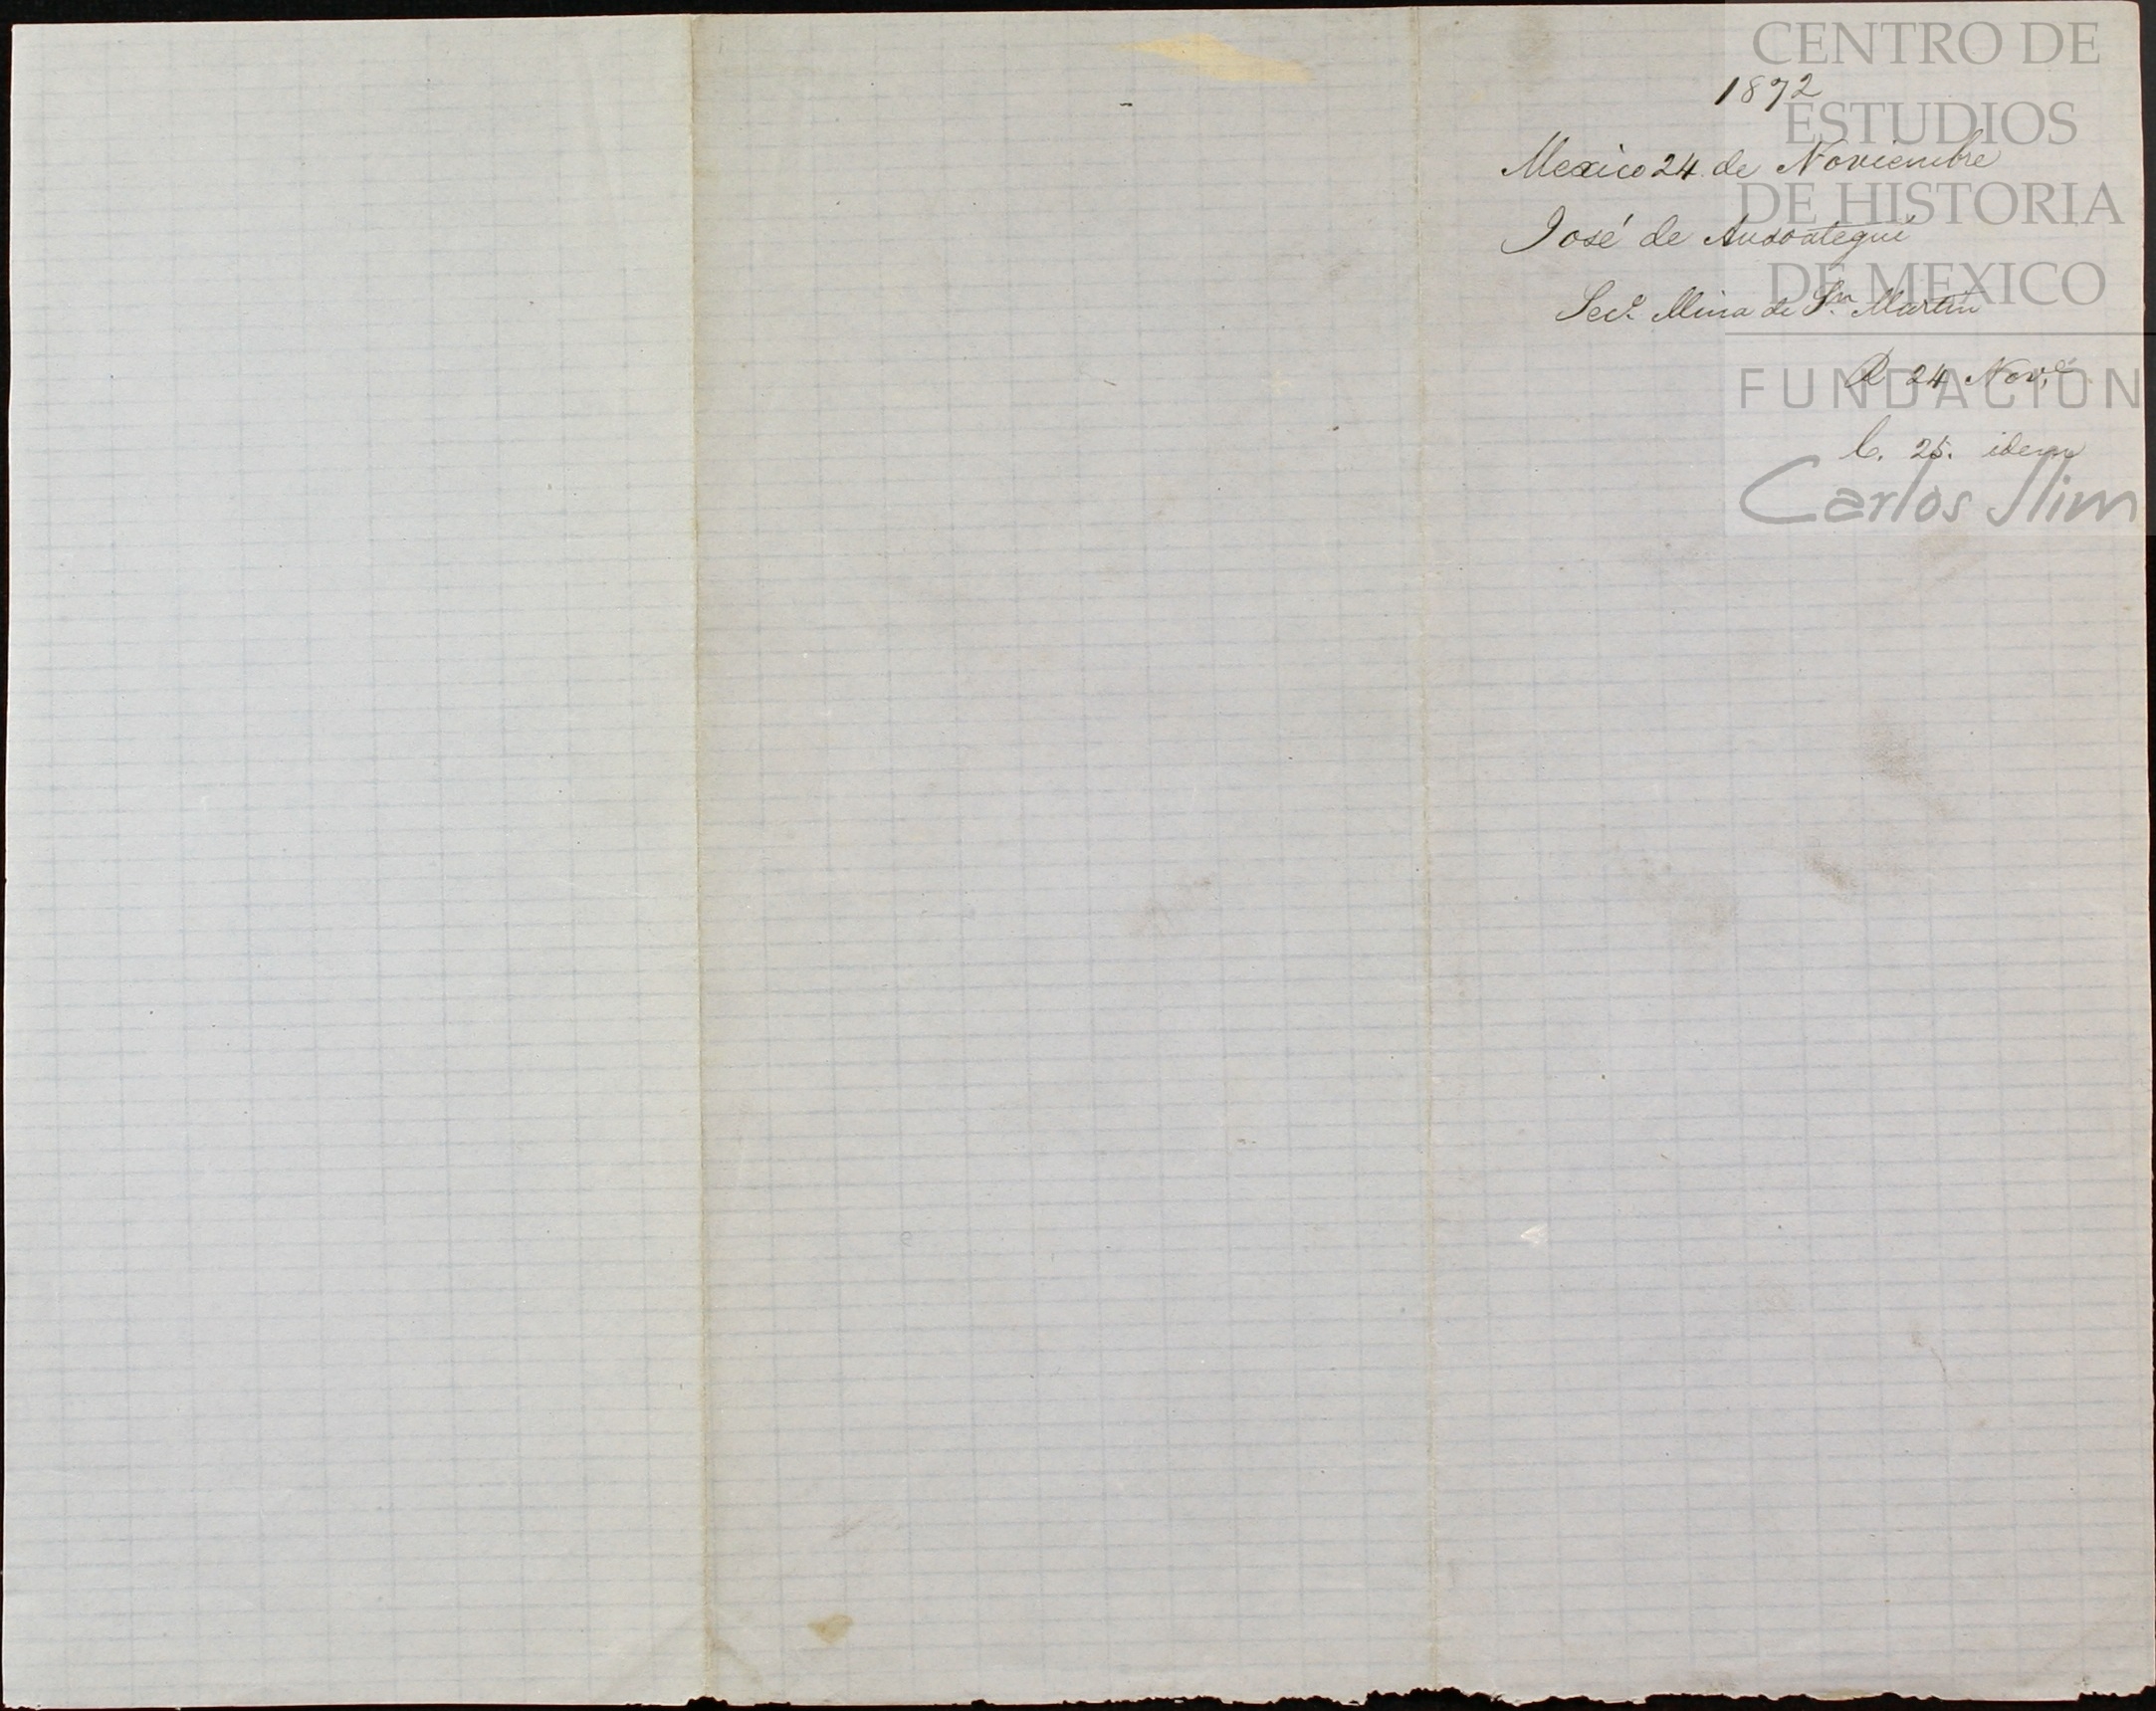 1892
Mexico 24 de Noviembre
José de Andonategui
Sec.º Mina de Sn. Martin
R 24 Nov.e
C. 25. idem
CENTRO DE
ESTUDIOS
DE HISTORIA
DE MEXICO
FUNDACION
Carlos Slim